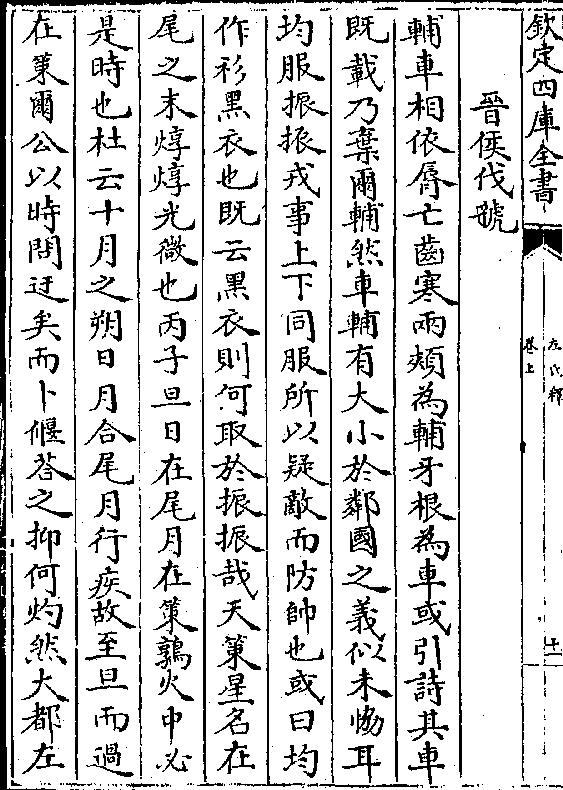 欽定四庫全書
左氏釋
卷上
十一
晉侯伐虢
輔車相依脣亡齒寒兩頰為輔牙根為車或引詩其車
既載乃棄爾輔然車輔有大小於鄰國之義似未恊耳
均服振振戎事上下同服所以疑敵而防帥也或曰均
作袗黑衣也既云黑衣則何取於振振哉天策星名在
尾之末焞焞光微也丙子旦日在尾月在策鶉火中必
是時也杜云十月之朔日月合尾月行疾故至旦而過
在策爾公以時問迋矣而卜偃荅之抑何灼然大都左